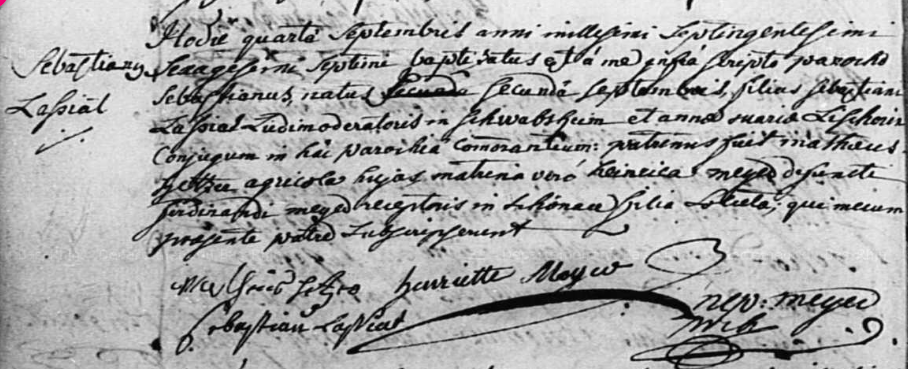 Sebastianus
Lassiat
Hodie quarta Septembris anni millesimi Septingentesimi
Sexagesimi Septimi baptizatus est a me infra scripto parocho
Sebastianus, natus secunda septembris, filius sebastiani
Lassiat Ludimoderatoris in schwabsheim et anna maria
Conjugum in hac parochia Comorantium: patrinus fuit matheus
agricola hujas matrina vero heinrica meyer defuncti
ferdinandi meyer receptoris in schönau filia soluta; qui mecum
praesente patre Subscripserunt
henriette Meyer
Sebastian Lassiat
nep: meyer